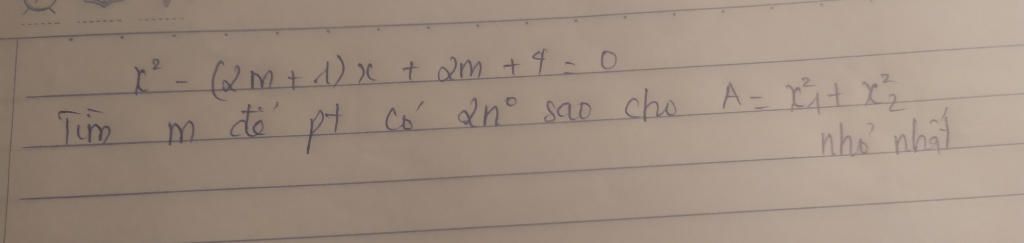 x² - (2m + 1)x + 2m + 4 = 0
Tìm m để pt có 2n° sao cho A = x₁² + x₂²
nhỏ nhất